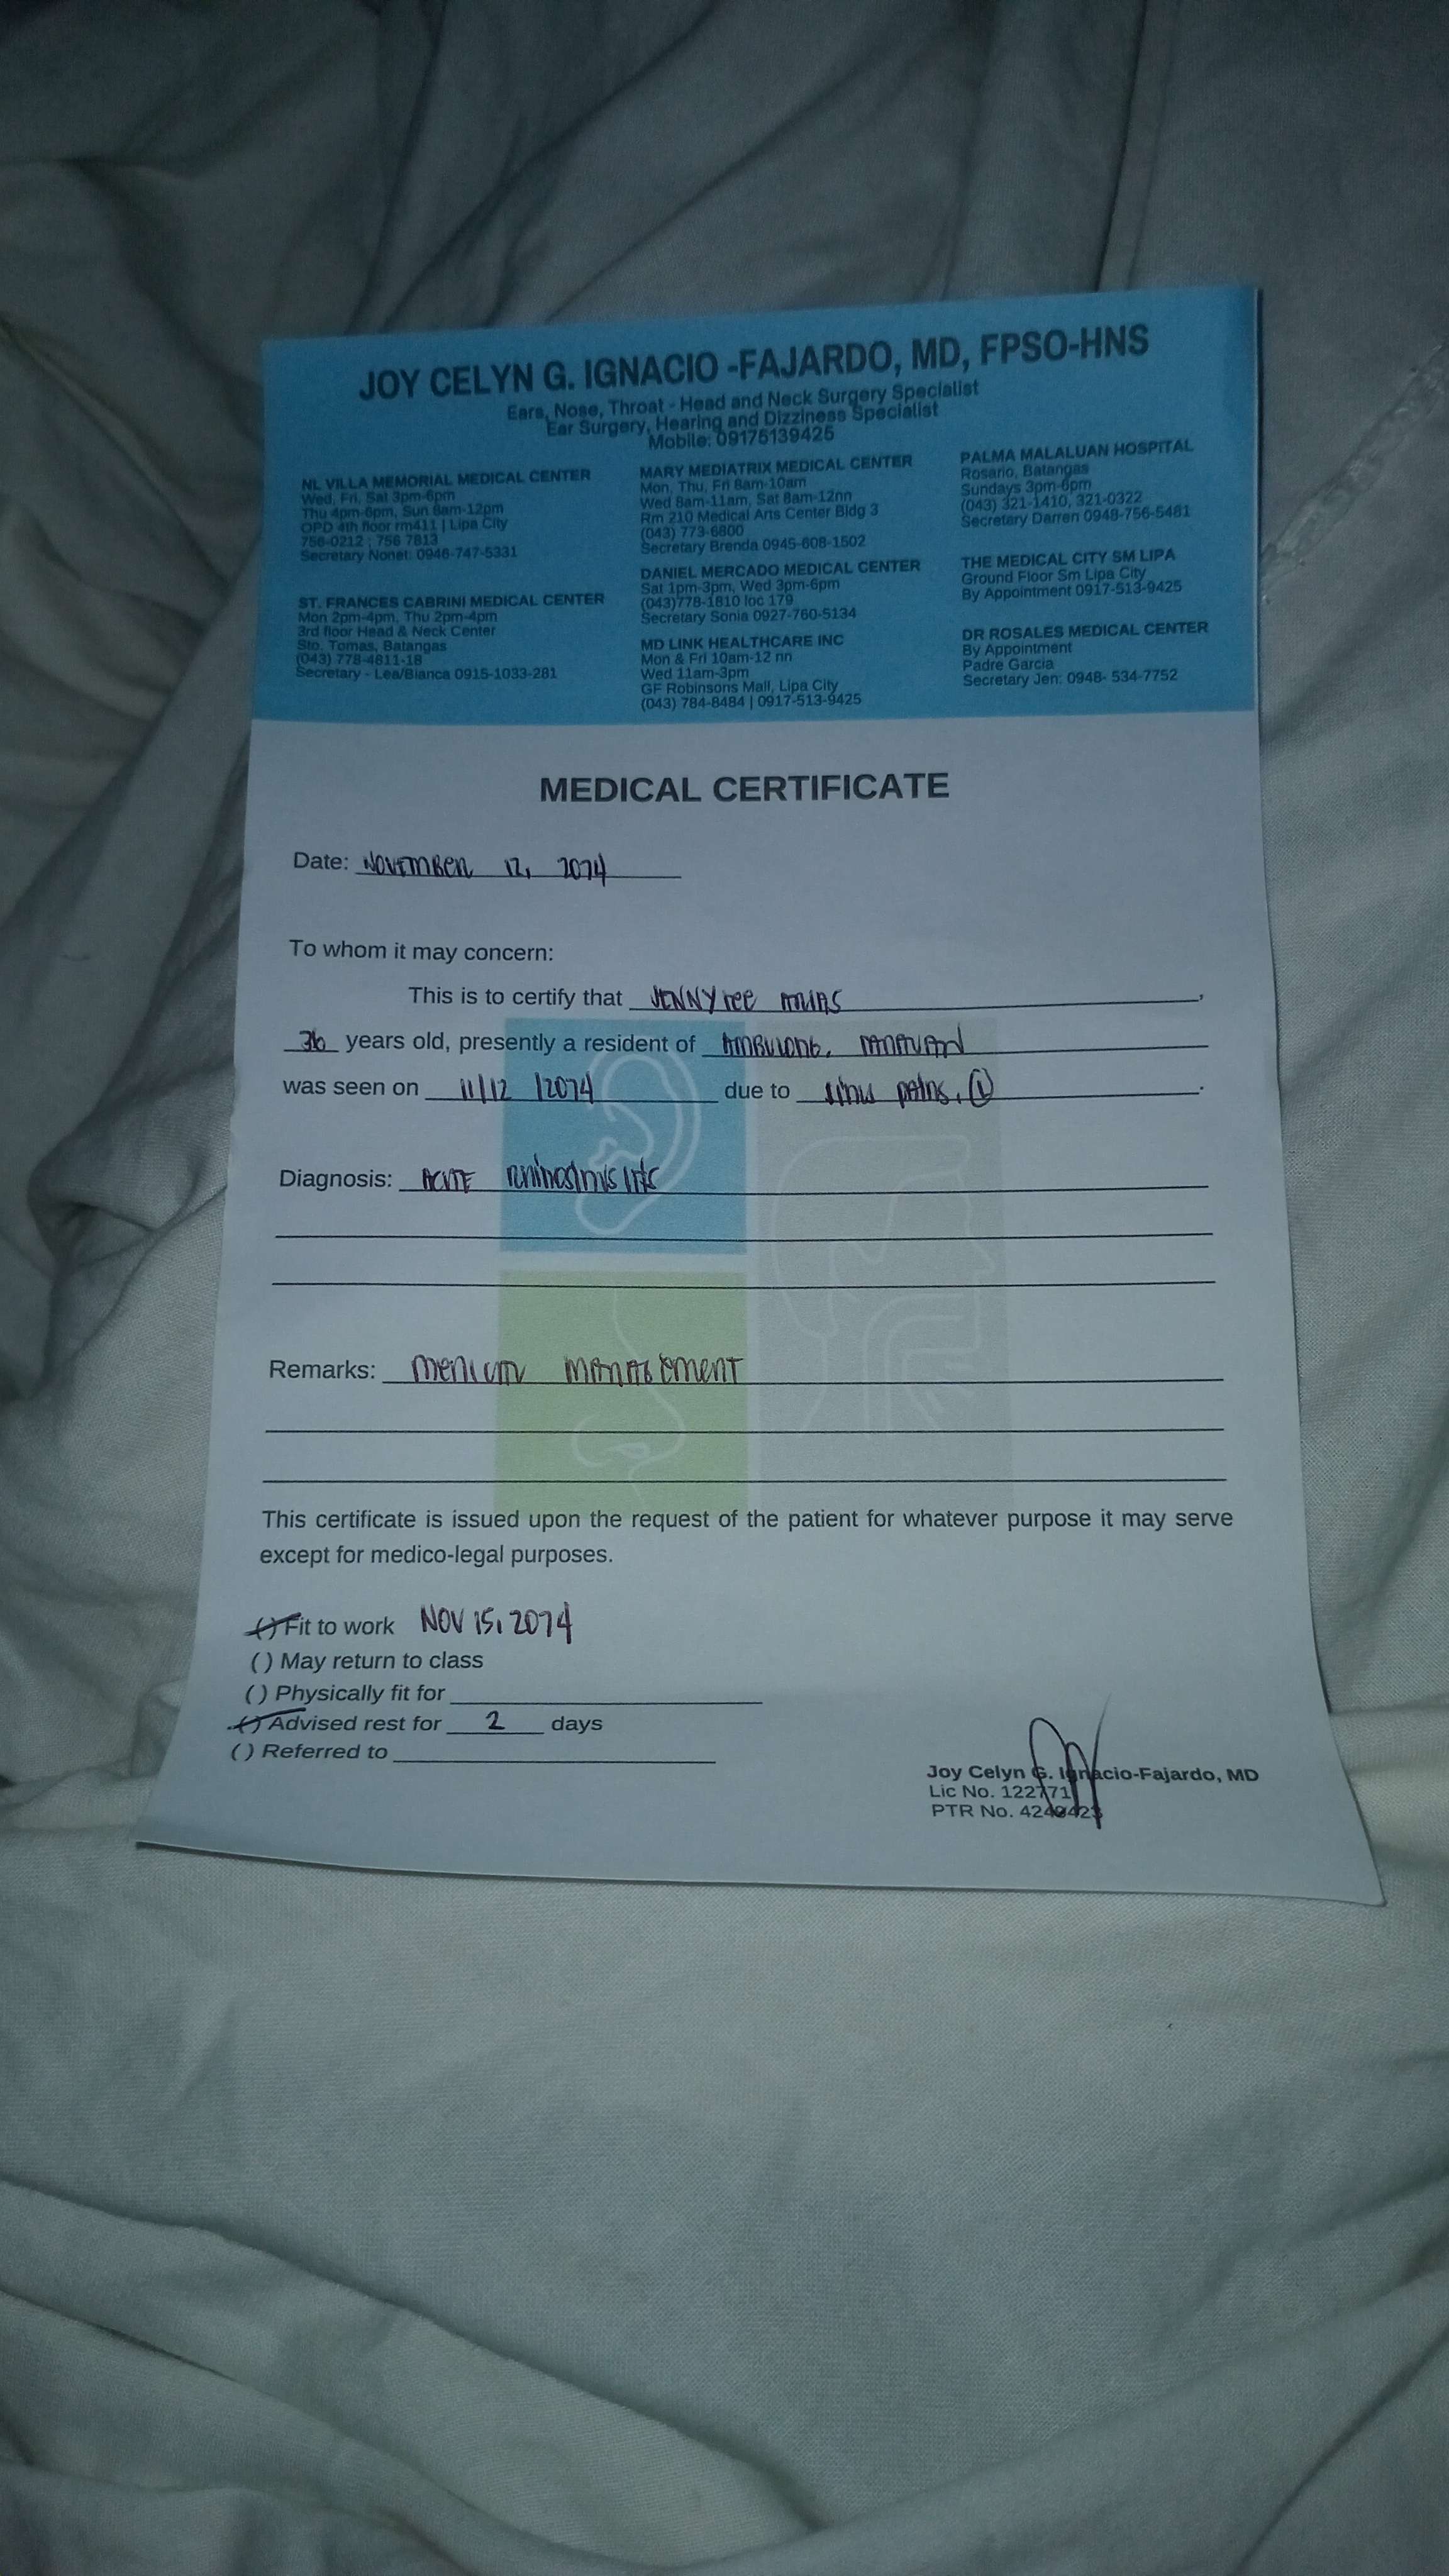 JOY CELYN G. IGNACIO -FAJARDO, MD, FPSO-HNS
Ears, Nose, Throat - Head and Neck Surgery Specialist
Ear Surgery, Hearing and Dizziness Specialist
Mobile: 09175139425
NL VILLA MEMORIAL MEDICAL CENTER
Wed, Fri, Sat 3pm-6pm
Thu 4pm-6pm, Sun 8am-12pm
OPD 4th floor rm411 | Lipa City
756-0212 ; 756 7813
Secretary Nonet: 0946-747-5331
ST. FRANCES CABRINI MEDICAL CENTER
Mon 2pm-4pm, Thu 2pm-4pm
3rd floor Head & Neck Center
Sto. Tomas, Batangas
(043) 778-4811-18
Secretary - Lea/Bianca 0915-1033-281
MARY MEDIATRIX MEDICAL CENTER
Mon, Thu, Fri 8am-10am
Wed 8am-11am, Sat 8am-12nn
Rm 210 Medical Arts Center Bldg 3
(043) 773-6800
Secretary Brenda 0945-608-1502
DANIEL MERCADO MEDICAL CENTER
Sat 1pm-3pm, Wed 3pm-6pm
(043)778-1810 loc 179
Secretary Sonia 0927-760-5134
MD LINK HEALTHCARE INC
Mon & Fri 10am-12 nn
Wed 11am-3pm
GF Robinsons Mall, Lipa City
(043) 784-8484 | 0917-513-9425
PALMA MALALUAN HOSPITAL
Rosario, Batangas
Sundays 3pm-6pm
(043) 321-1410, 321-0322
Secretary Darren 0948-756-5481
THE MEDICAL CITY SM LIPA
Ground Floor Sm Lipa City
By Appointment 0917-513-9425
DR ROSALES MEDICAL CENTER
By Appointment
Padre Garcia
Secretary Jen: 0948- 534-7752
MEDICAL CERTIFICATE
Date: NOVEMBER 12, 2024
To whom it may concern:
This is to certify that JENNY ,
36 years old, presently a resident of
was seen on 11/12/2024 due to pains, .
Diagnosis: ACUTE
Remarks: MEDICAL MANAGEMENT
This certificate is issued upon the request of the patient for whatever purpose it may serve
except for medico-legal purposes.
( ) Fit to work NOV 15, 2024
( ) May return to class
( ) Physically fit for
( ) Advised rest for 2 days
( ) Referred to
Joy Celyn G. Ignacio-Fajardo, MD
Lic No. 122771
PTR No.